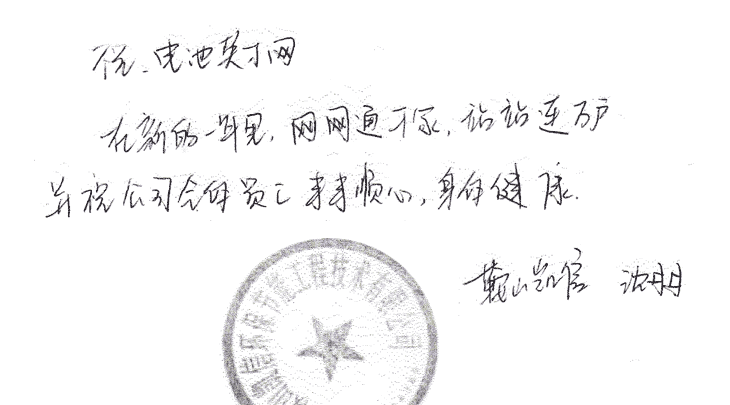 祝、电池英才网
在新的一年里,网网通万家,站站连万户
并祝公司全体员工事事顺心,身体健康.
鞍山凯信 沈丹丹
凯信环保节能工程技术有限公司